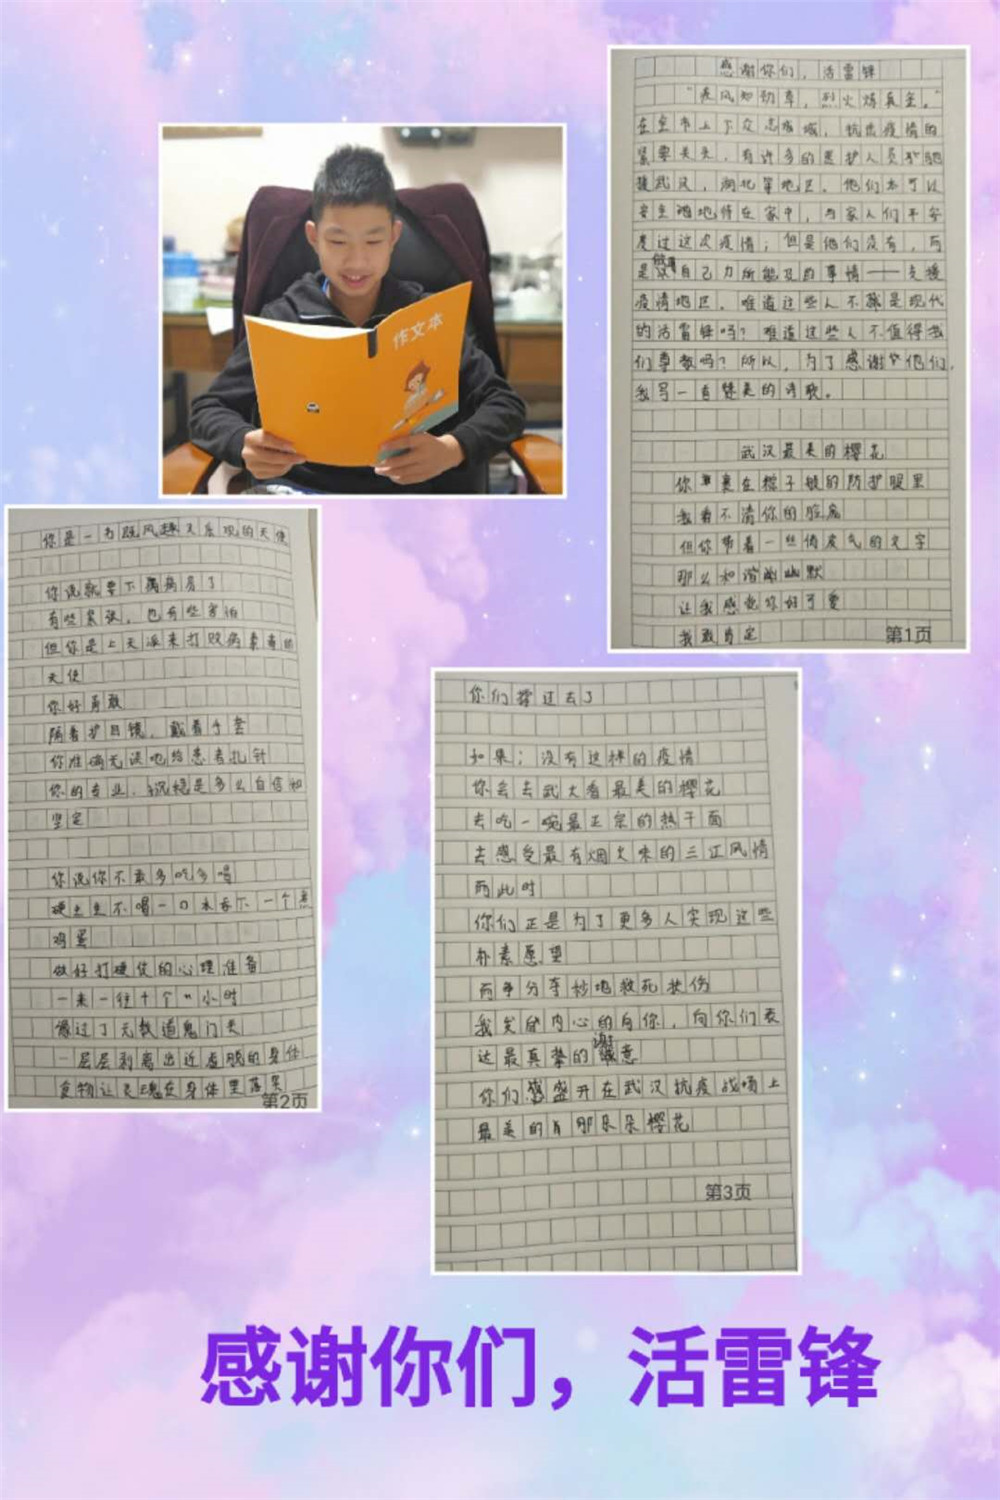 作文本
感谢你们，活雷锋
“疾风知劲草，烈火炼真金。”
在全市上下众志成城，抗击疫情的
紧要关头，有许多的医护人员驰
援武汉，湖北等地区。他们本可以
安全地待在家中，与家人们平安
度过这次疫情；但是他们没有，而
是做着自己力所能及的事情——支援
疫情地区。难道这些人不就是现代
的活雷锋吗？难道这些人不值得我
们尊敬吗？所以，为了感谢他们，
我写一首赞美的诗歌。
武汉最美的樱花
你裹在粽子般的防护服里
我看不清你的脸庞
但你带着一些俏皮气的文字
那么和谐幽默
让我感觉你好可爱
我敢肯定
第1页
你是一名既风趣又乐观的天使
你说就要下病房了
有些紧张，也有些害怕
但你是上天派来打败病毒的
天使
你好勇敢
隔着护目镜，戴着手套
你准确无误地给患者扎针
你的专业、沉稳是多么自信和
坚定
你说你不敢多吃多喝
硬生生不喝一口水吞下一个煮
鸡蛋
做好打硬仗的心理准备
一来一往十个小时
像过了无数道鬼门关
一层层剥离出近虚脱的身体
食物让灵魂在身体里落
第2页
你们撑过去了
如果；没有这样的疫情
你会去武大看最美的樱花
去吃一碗最正宗的热干面
去感受最有烟火味的三江风情
而此时
你们正是为了更多人实现这些
朴素愿望
而争分夺秒地救死扶伤
我发自内心的向你，向你们表
达最真挚的谢意
你们盛开在武汉抗疫战场上
最美的那朵朵樱花
第3页
感谢你们，活雷锋